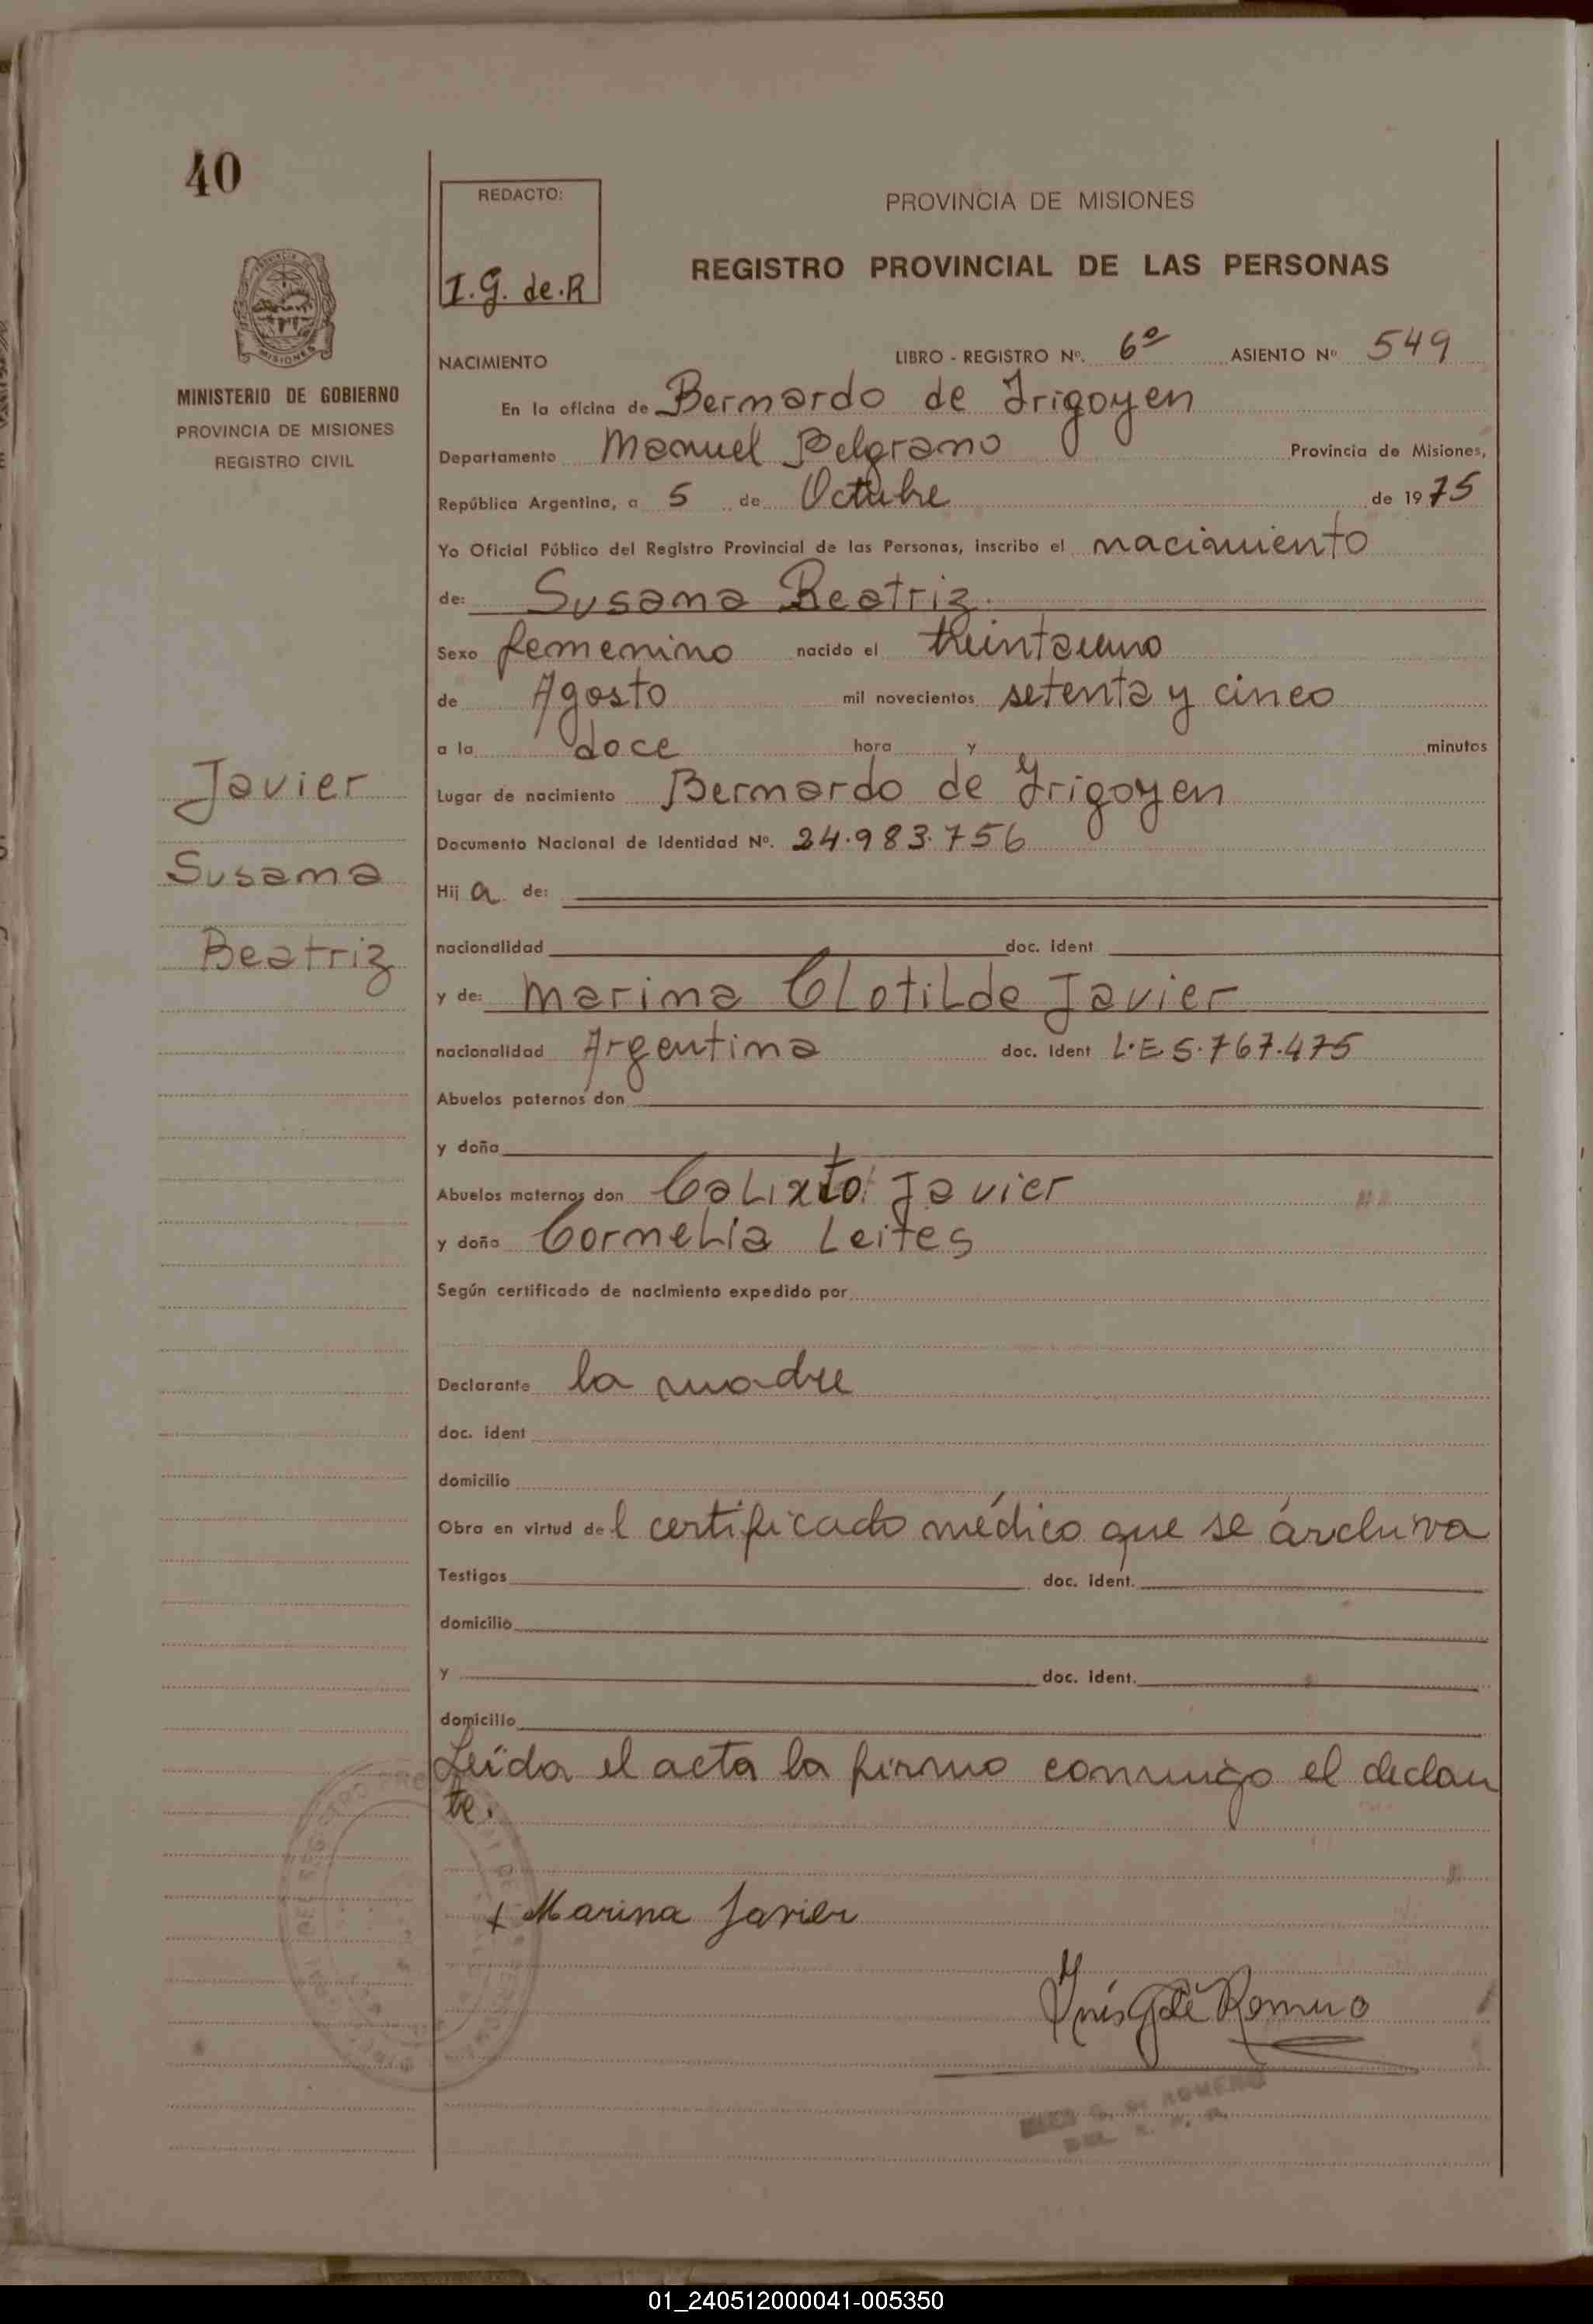 40
REDACTO:
I.G. de.R
PROVINCIA DE MISIONES
REGISTRO PROVINCIAL DE LAS PERSONAS
MISIONES
MINISTERIO DE GOBIERNO
PROVINCIA DE MISIONES
REGISTRO CIVIL
NACIMIENTO LIBRO - REGISTRO Nº. 6º ASIENTO Nº 549
En la oficina de Bernardo de Irigoyen
Departamento Manuel Belgrano Provincia de Misiones,
República Argentina, a 5 de Octubre de 1975
Yo Oficial Público del Registro Provincial de las Personas, inscribo el nacimiento
de: Susana Beatriz.
Sexo femenino nacido el treintaiuno
de Agosto mil novecientos setenta y cinco
a la doce hora y minutos
Javier
Lugar de nacimiento Bernardo de Irigoyen
Documento Nacional de Identidad Nº. 24.983.756
Susana
Hija de:
Beatriz
nacionalidad doc. ident
y de: Marina Clotilde Javier
nacionalidad Argentina doc. ident L.E.5.767.475
Abuelos paternos don
y doña
Abuelos maternos don Calixto Javier
y doña Cornelia Leites
Según certificado de nacimiento expedido por
Declarante la madre
doc. ident
domicilio
Obra en virtud del certificado médico que se archiva
Testigos doc. ident.
domicilio
y doc. ident.
domicilio
Leída el acta la firmo conmigo el declan
te.
x Marina Javier
Inés G de Romero
INES G. DE ROMERO
01_240512000041-005350